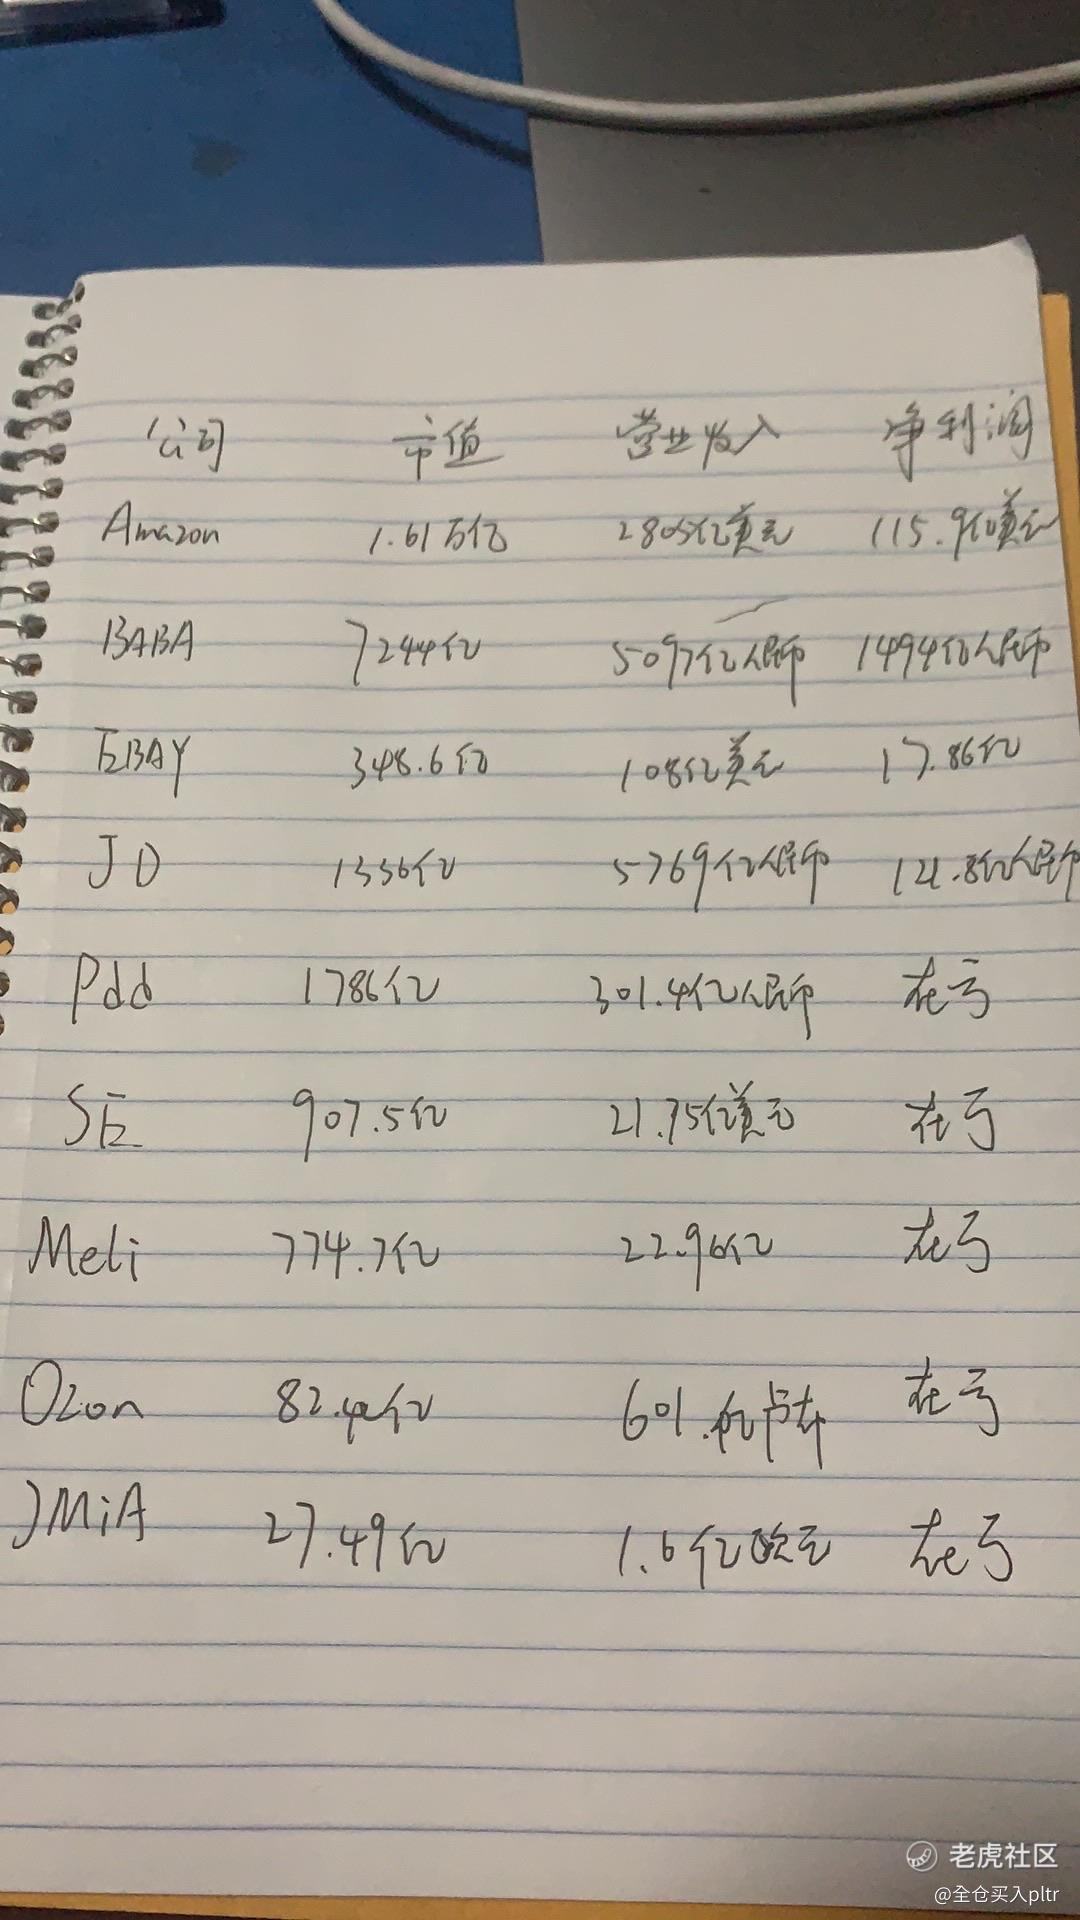 公司 市值 营业收入 净利润
Amazon 1.61万亿 2805亿美元 115.9亿美元
BABA 7244亿 5097亿人民币 1494亿人民币
EBAY 348.6亿 108亿美元 17.86亿
JD 1336亿 5769亿人民币 121.8亿人民币
Pdd 1786亿 301.4亿人民币 在亏
SE 907.5亿 21.75亿美元 在亏
Meli 774.7亿 22.96亿 在亏
Ozon 82.42亿 卢布 在亏
JMiA 27.49亿 1.6亿欧元 在亏
老虎社区
@全仓买入pltr